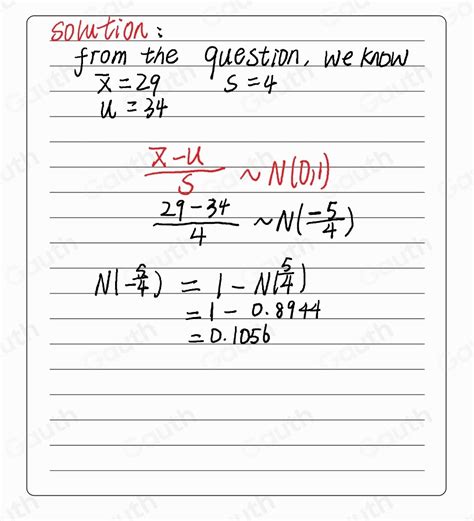 solution:
from the question, we know
x̄ = 29 s = 4
u = 34
x̄-u/s ~ N(0,1)
29-34/4 ~ N(-5/4)
N(-5/4) = 1 - N(5/4)
= 1 - 0.8944
= 0.1056